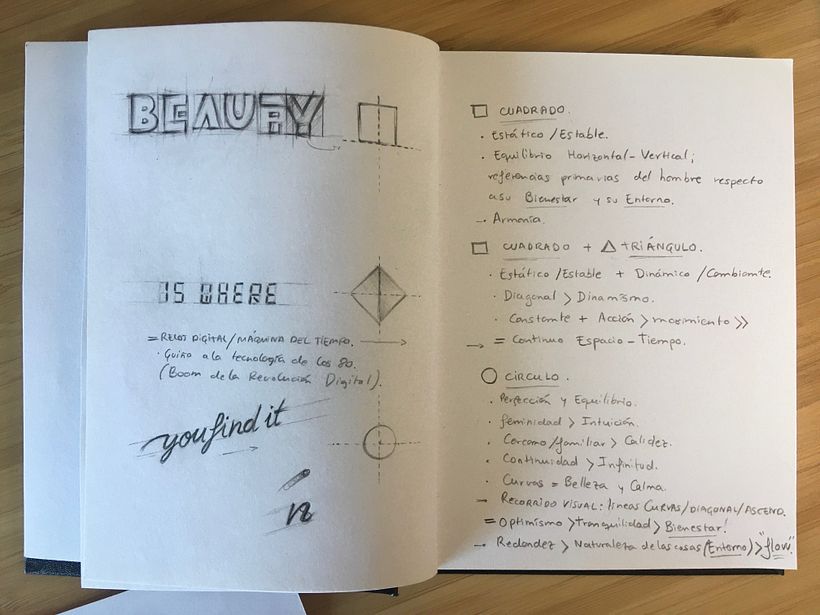 BEAUTY
IS WHERE
= RELOJ DIGITAL/MÁQUINA DEL TIEMPO.
· Guiño a la tecnología de los 80.
(Boom de la Revolución Digital).
you find it
n
CUADRADO.
· Estático/Estable.
· Equilibrio Horizontal-Vertical;
referencias primarias del hombre respecto
a su Bienestar y su Entorno.
→ Armonía.
CUADRADO + TRIÁNGULO.
· Estático/Estable + Dinámico/Cambiante.
· Diagonal > Dinamismo.
· Constante + Acción > movimiento >>
→ = Continuo Espacio-Tiempo.
CÍRCULO.
· Perfección y Equilibrio.
· feminidad > Intuición.
· Cercano/familiar > Calidez.
· Continuidad > Infinitud.
· Curvas = Belleza y Calma.
→ RECORRIDO VISUAL: líneas CURVAS/DIAGONAL/ASCEND.
= Optimismo > tranquilidad > Bienestar!
→ Redondez > Naturaleza de las cosas (Entorno) > "flow".